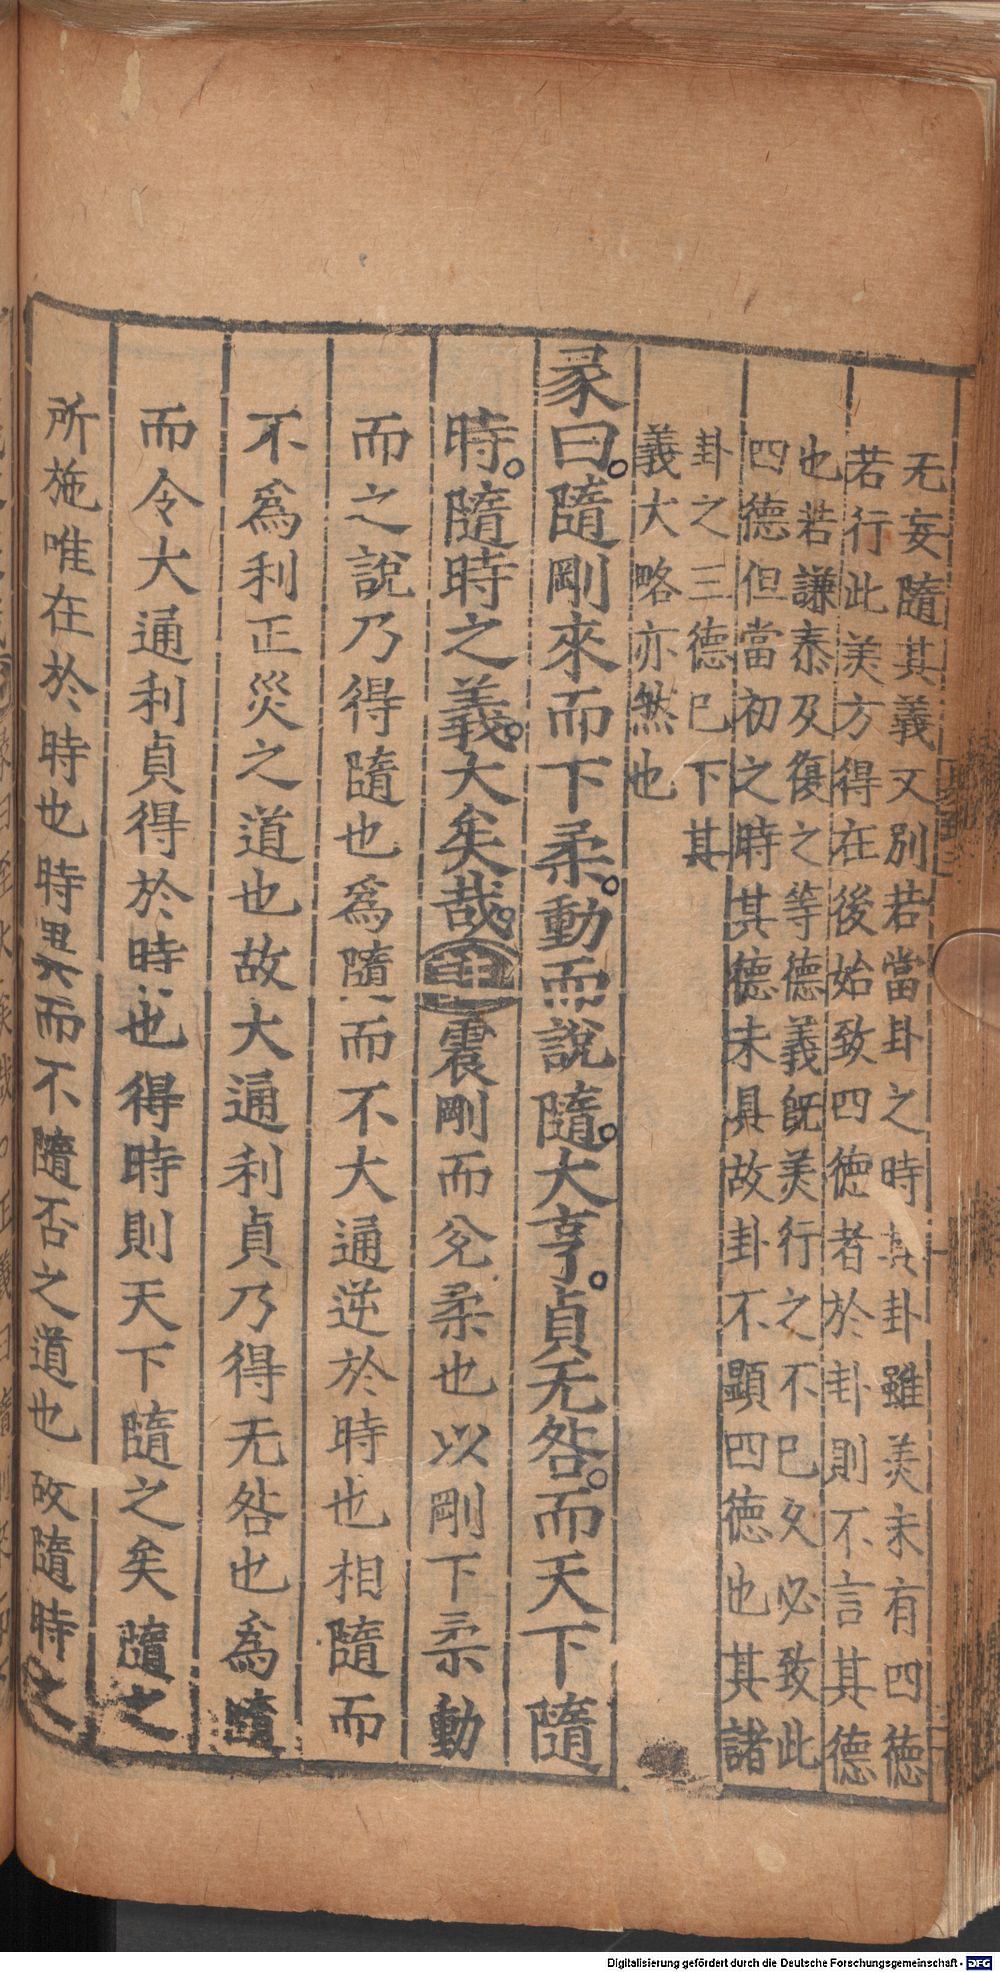 无妄隨其義又別若當卦之時其卦雖美未有四德
若行此美方得在後始致四德者於卦則不言其德
也若謙泰及復之等德義旣美行之不已久必致此
四德但當初之時其德未具故卦不顯四德也其諸
卦之三德已下其
義大略亦然也
彖曰。隨剛來而下柔。動而說隨。大亨。貞无咎。而天下隨
時。隨時之義。大矣哉。註震剛而兌柔也以剛下柔動
而之說乃得隨也爲隨而不大通逆於時也相隨而
不爲利正災之道也故大通利貞乃得无咎也爲隨
而令大通利貞得於時也得時則天下隨之矣隨之
所施唯在於時也時異而不隨否之道也故隨時之
Digitalisierung gefördert durch die Deutsche Forschungsgemeinschaft - DFG